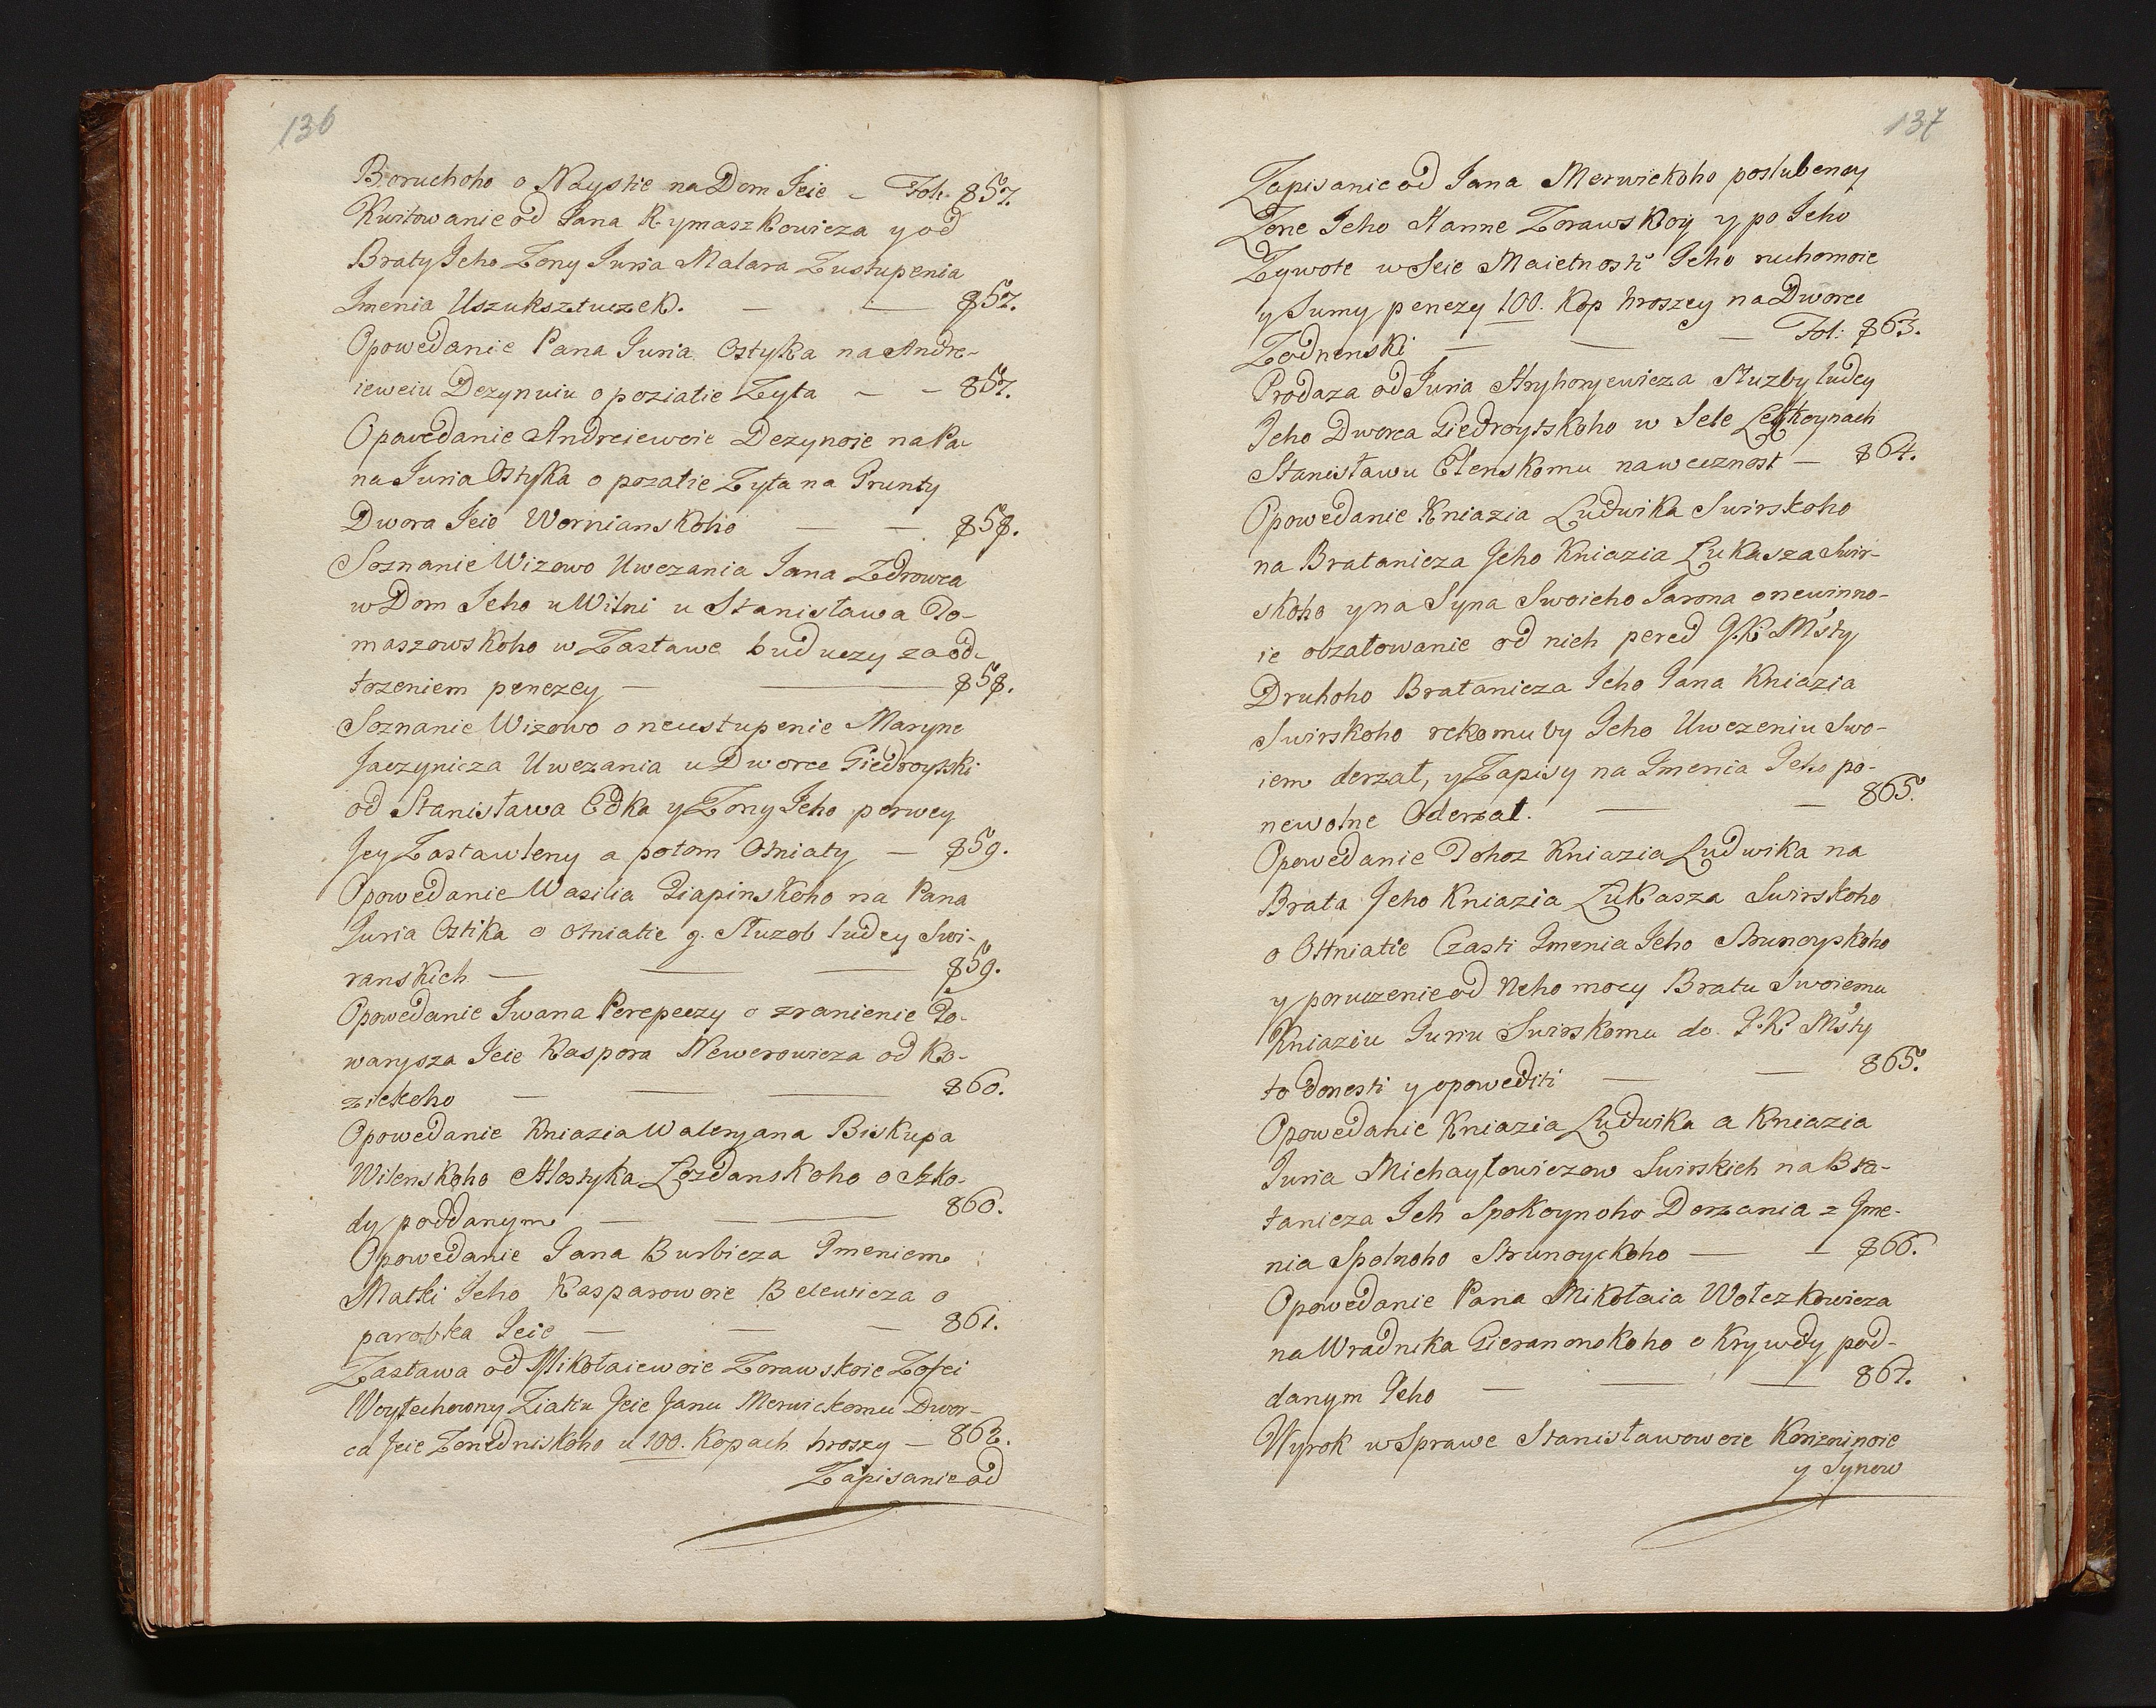 136
Boruchoho o Nayście na Dom Jeie – Fol. 857.
Kwitowanie od Jana Rymaszkowicza y od
Braty Jeho Zony Juria Malara Zustupenia
Jmenia Uszuksztuczek. — — 857.
Opowedanie Pana Juria Ostyka na Andre-
ieweiu Dezynuiu o poziatie Zyta – – 857.
Opowedanie Andreieweie Dezynoie na Pa-
na Juria Ostyka o pozatie Zyta na Grunty
Dwora Jeie Wornianskoho — — 858.
Soznanie Wizowo Uwezania Jana Zdrowca
w Dom Jeho u Wilni u Stanisława To-
maszowskoho w Zastawe buduczy za od-
łozeniem penezey — — 858.
Soznanie Wizowo o neustupenie Maryne
Jaczynicza Uwezania u Dworce Giedroytski
od Stanisława Edka y Zony Jeho perwey
Jey Zastawleny a potom Otniaty — 859.
Opowedanie Wasilia Giapinskoho na Pana
Juria Ostika o otniatie 9. Służob ludey Swi-
ranskich — — — 859.
Opowedanie Iwana Perepeczy o zranienie To-
warysza Jeie Kaspora Newerowicza od Ko-
zickoho — — — 860.
Opowedanie Kniazia Waleryana Biskupa
Wilenskoho Hostyka Łozdanskoho o Szko-
dy poddanym — — — 860.
Opowedanie Jana Burbicza Jmeniem
Matki Jeho Kasparoweie Belewicza o
parobka Jeie — — — 861.
Zastawa od Mikołaieweie Zorawskoie Zofei
Woytechowny Ziatiu Jeie Janu Merwickomu Dwor-
ca Jeie Zonedniskoho u 100. Kopach hroszy — 862.
Zapisanie od
137
Zapisanie od Jana Merwickoho poslubenoy
Zone Jeho Hanne Zorawskoy y po Jeho
Zywote wseie Maietnosti Jeho ruchomoie
y Sumy penezy 100. Kop hroszey na Dworce
Zodnenski — — — Fol: 863.
Prodaza od Juria Hryhoryewicza Służby ludey
Jeho Dworca Giedroytskoho w Sele
Stanisławu Elenskomu na wecznost — 864.
Opowedanie Kniazia Ludwika Swirskoho
na Bratanicza Jeho Kniazia Łukasza Swir-
skoho y na Syna Swoieho Jarona o newinno-
ie obzalowanie od nich pered J.K. Msty
Druhoho Bratanicza Jeho Jana Kniazia
Swirskoho rekomu by Jeho Uwezeniu Swo-
iem derzał, y Zapisy na Jmenia Jeho po-
newolne Oderzał. — — 865.
Opowedanie Tohoz Kniazia Ludwika na
Brata Jeho Kniazia Łukasza Swirskoho
o Otniatie Czasti Jmenia Jeho Strunoyskoho
y poruczenie od Neho mocy Bratu Swoiemu
Kniaziu Juriu Swirskomu do J.K. Msty
to donesti y opowediti — — 865.
Opowedanie Kniazia Ludwika a Kniazia
Juria Michayłowiczow Swirskich na Bra-
tanicza Jeh Spokoynoho Derzania z Jme-
nia Spolnoho Strunoyckoho — – 866.
Opowedanie Pana Mikołaia Wołczkowicza
na Wradnika Gieranonskoho o Krywdy pod-
danym Jeho — — — 867.
Wyrok w Sprawe Stanisławoweie Korizninoie
y Synow